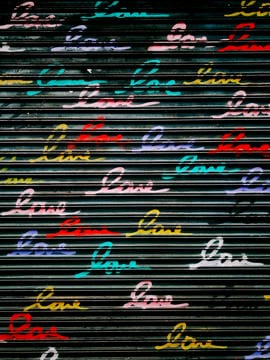 love
love love
love love love
love love love
love love
love love
love love love
love love
love love
love love
love
love love
love love
love love
love love
love
love love